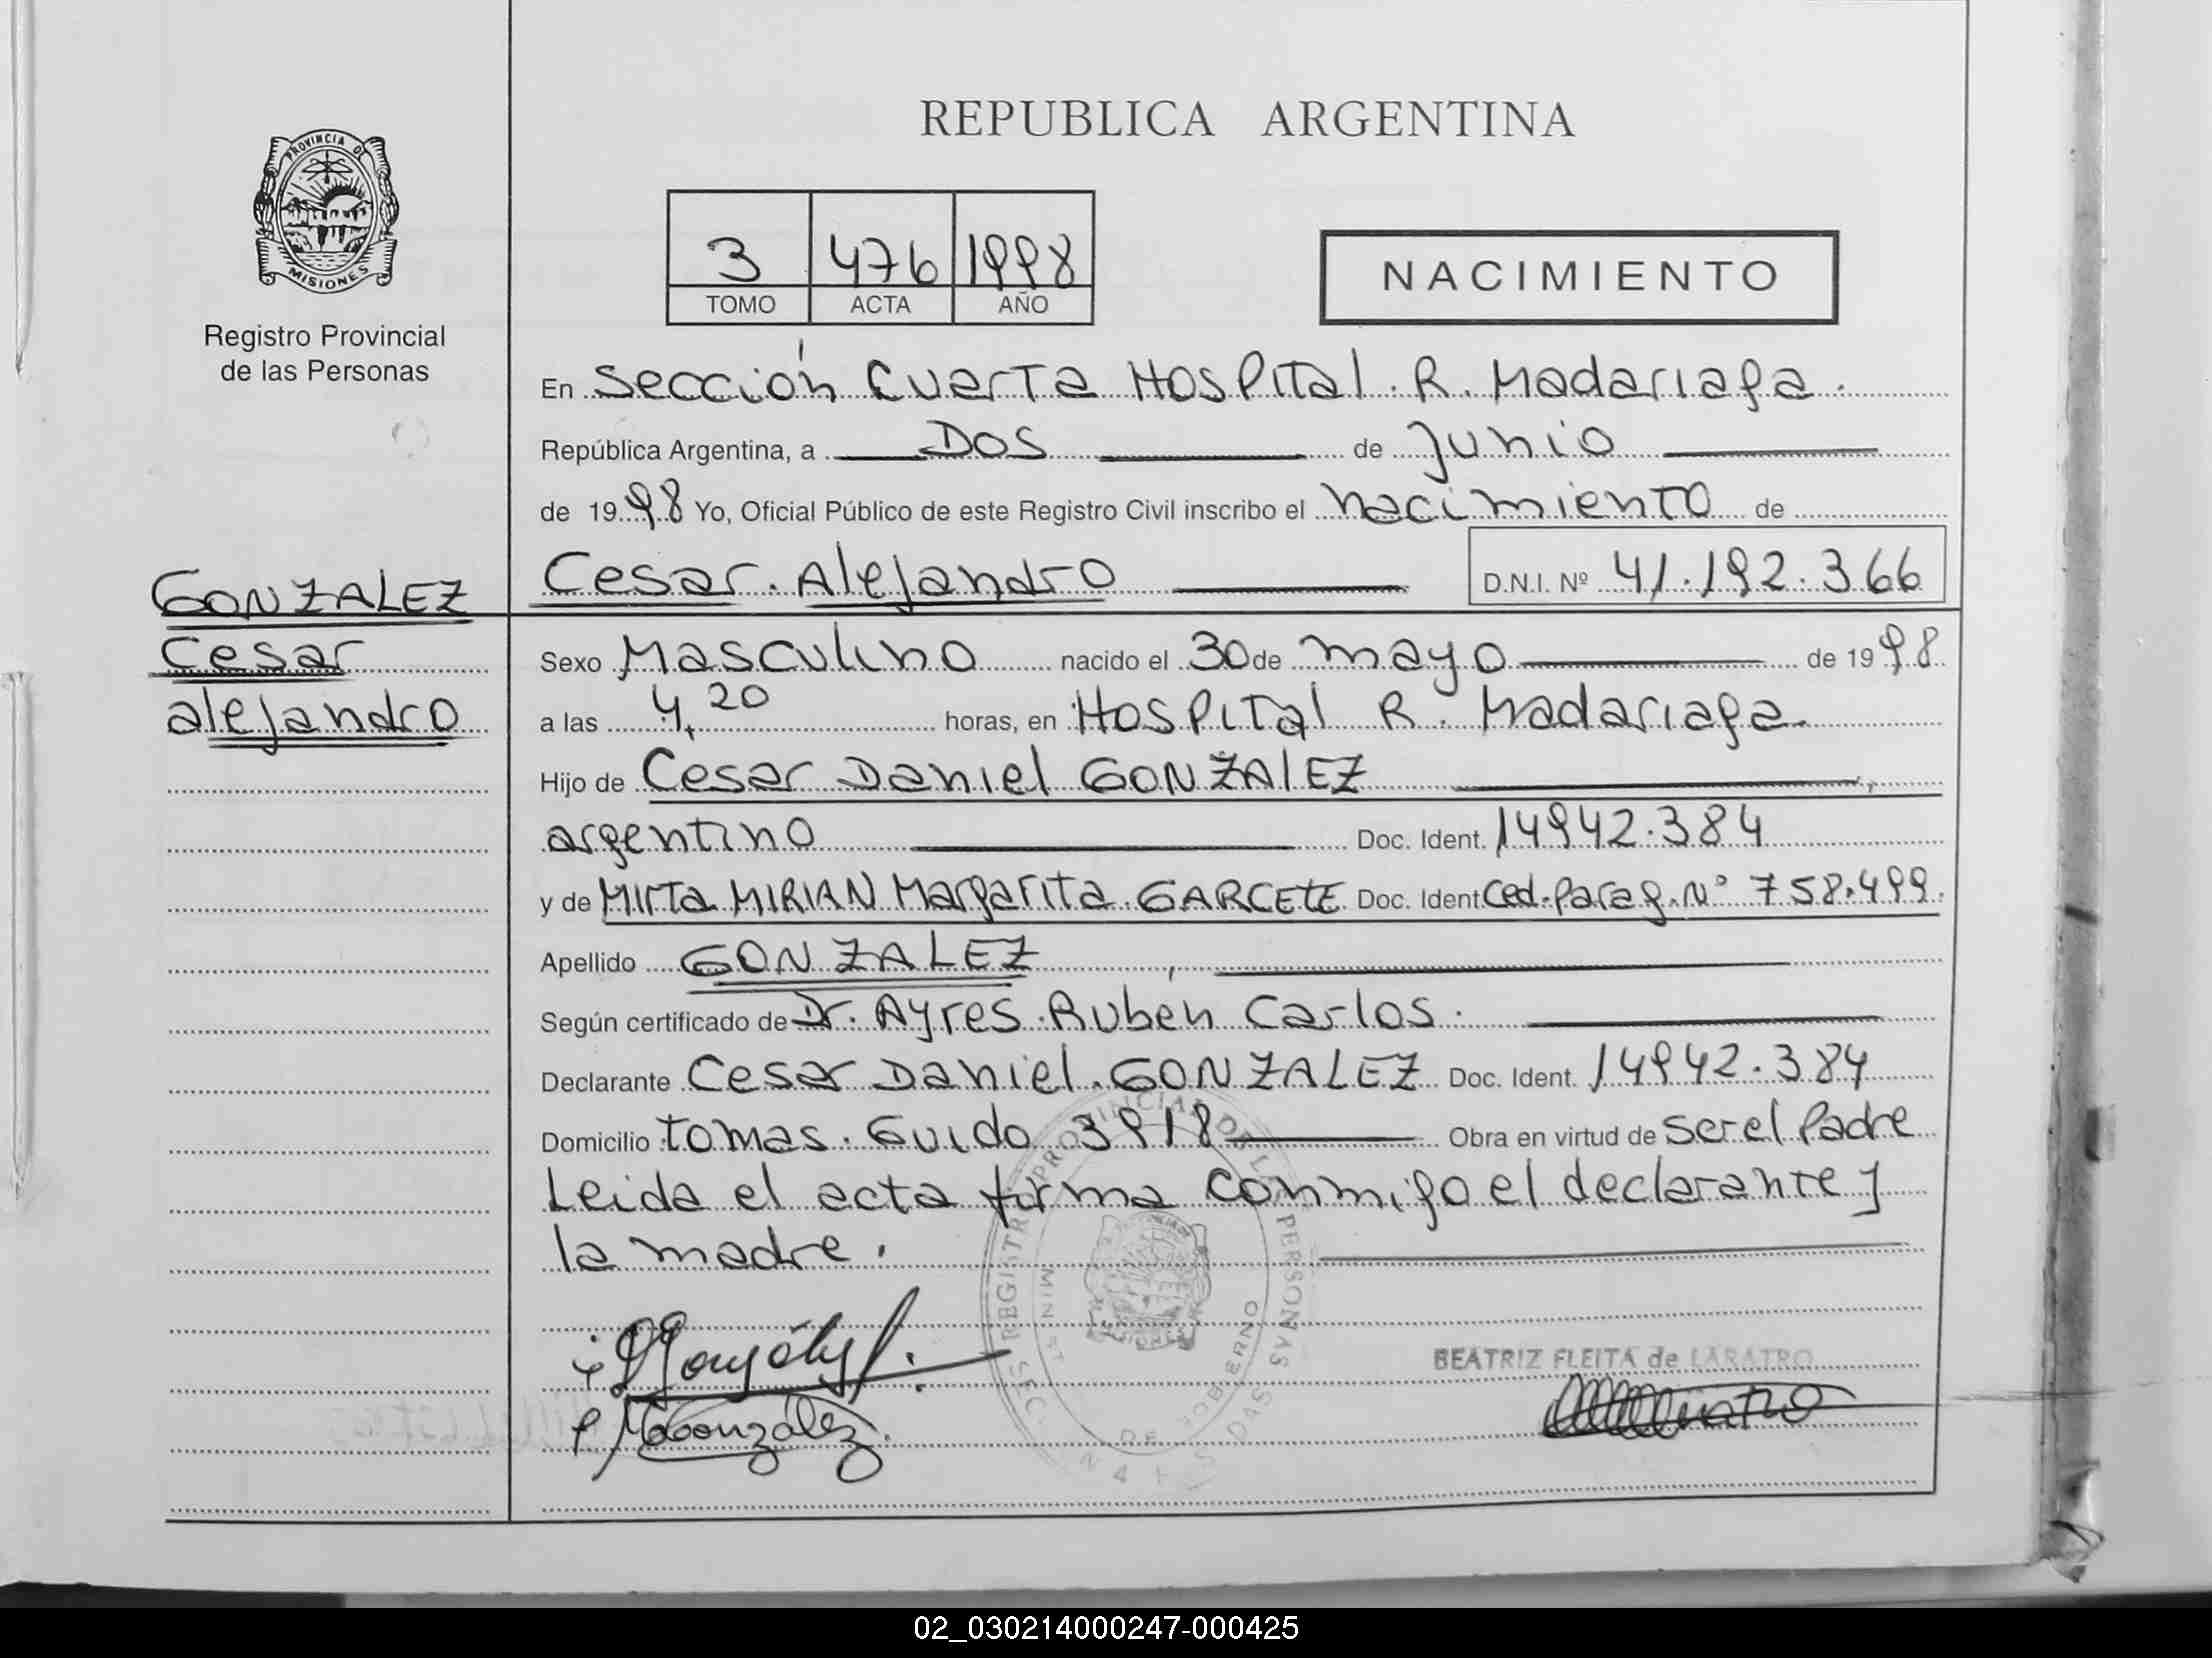 REPUBLICA ARGENTINA
PROVINCIA DE
MISIONES
Registro Provincial
de las Personas
3 476 1998
TOMO ACTA AÑO
NACIMIENTO
En Sección Cuarta Hospital R. Madariaga.
República Argentina, a Dos de Junio
de 1998 Yo, Oficial Público de este Registro Civil inscribo el nacimiento de
GONZALEZ
Cesar
alejandro
Cesar Alejandro D.N.I. Nº 41.192.366
Sexo Masculino nacido el 30 de mayo de 1998
a las 4,20 horas, en Hospital R. Madariaga.
Hijo de Cesar Daniel GONZALEZ,
argentino Doc. Ident. 14942.384
y de Mirta MIRIAN Margarita GARCETE Doc. Ident Ced. Parag. Nº 758.499.
Apellido GONZALEZ,
Según certificado de Dr. Ayres Rubén Carlos.
Declarante Cesar Daniel GONZALEZ Doc. Ident. 14942.384
Domicilio tomas Guido 3918 Obra en virtud de ser el Padre
Leida el acta firma conmigo el declarante y
la madre.
REGISTRO PROVINCIAL DE LAS PERSONAS
BEATRIZ FLEITA de LARATRO
González
02_030214000247-000425